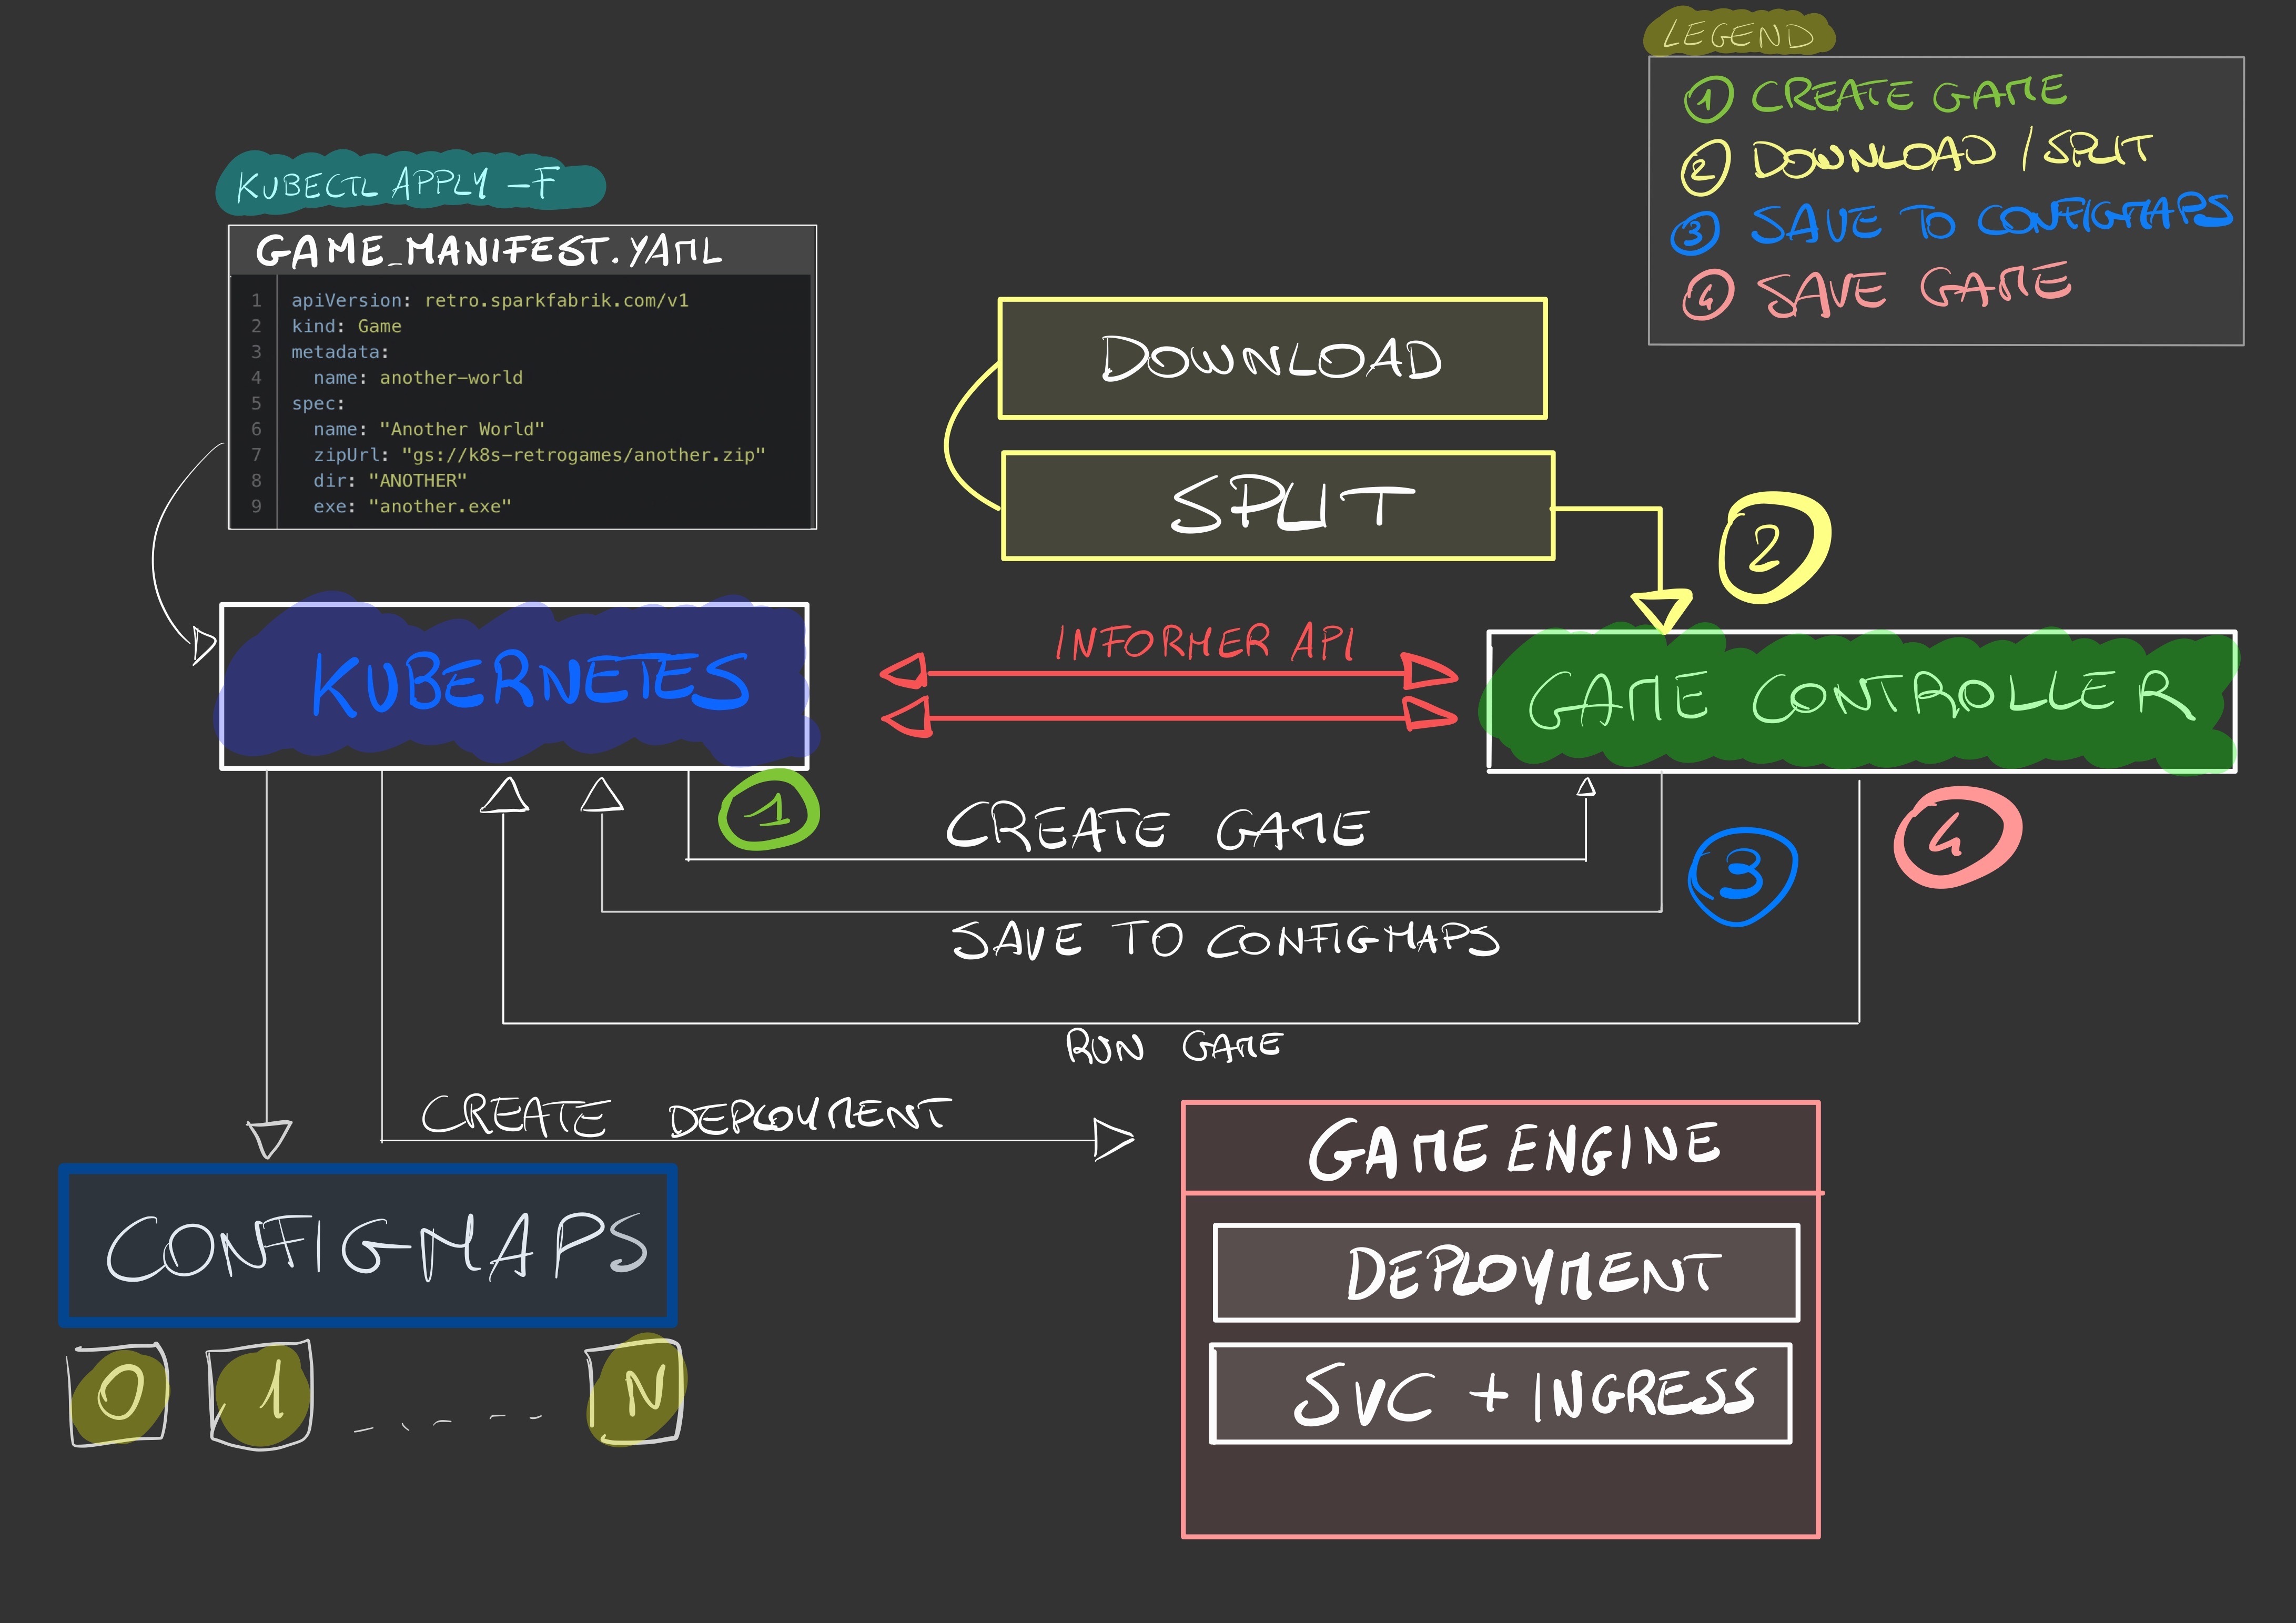 LEGEND
1 CREATE GAME
2 DOWNLOAD / SPLIT
3 SAVE TO CONFIGMAPS
4 SAVE GAME
KUBECTL APPLY -F
GAME_MANIFEST.YAML
1 apiVersion: retro.sparkfabrik.com/v1
2 kind: Game
3 metadata:
4 name: another-world
5 spec:
6 name: "Another World"
7 zipUrl: "gs://k8s-retrogames/another.zip"
8 dir: "ANOTHER"
9 exe: "another.exe"
DOWNLOAD
SPLIT
2
KUBERNETES
INFORMER API
GAME CONTROLLER
1
CREATE GAME
3
4
SAVE TO CONFIGMAPS
RUN GAME
CREATE DEPLOYMENT
GAME ENGINE
DEPLOYMENT
SVC + INGRESS
CONFIGMAPS
0 1 N